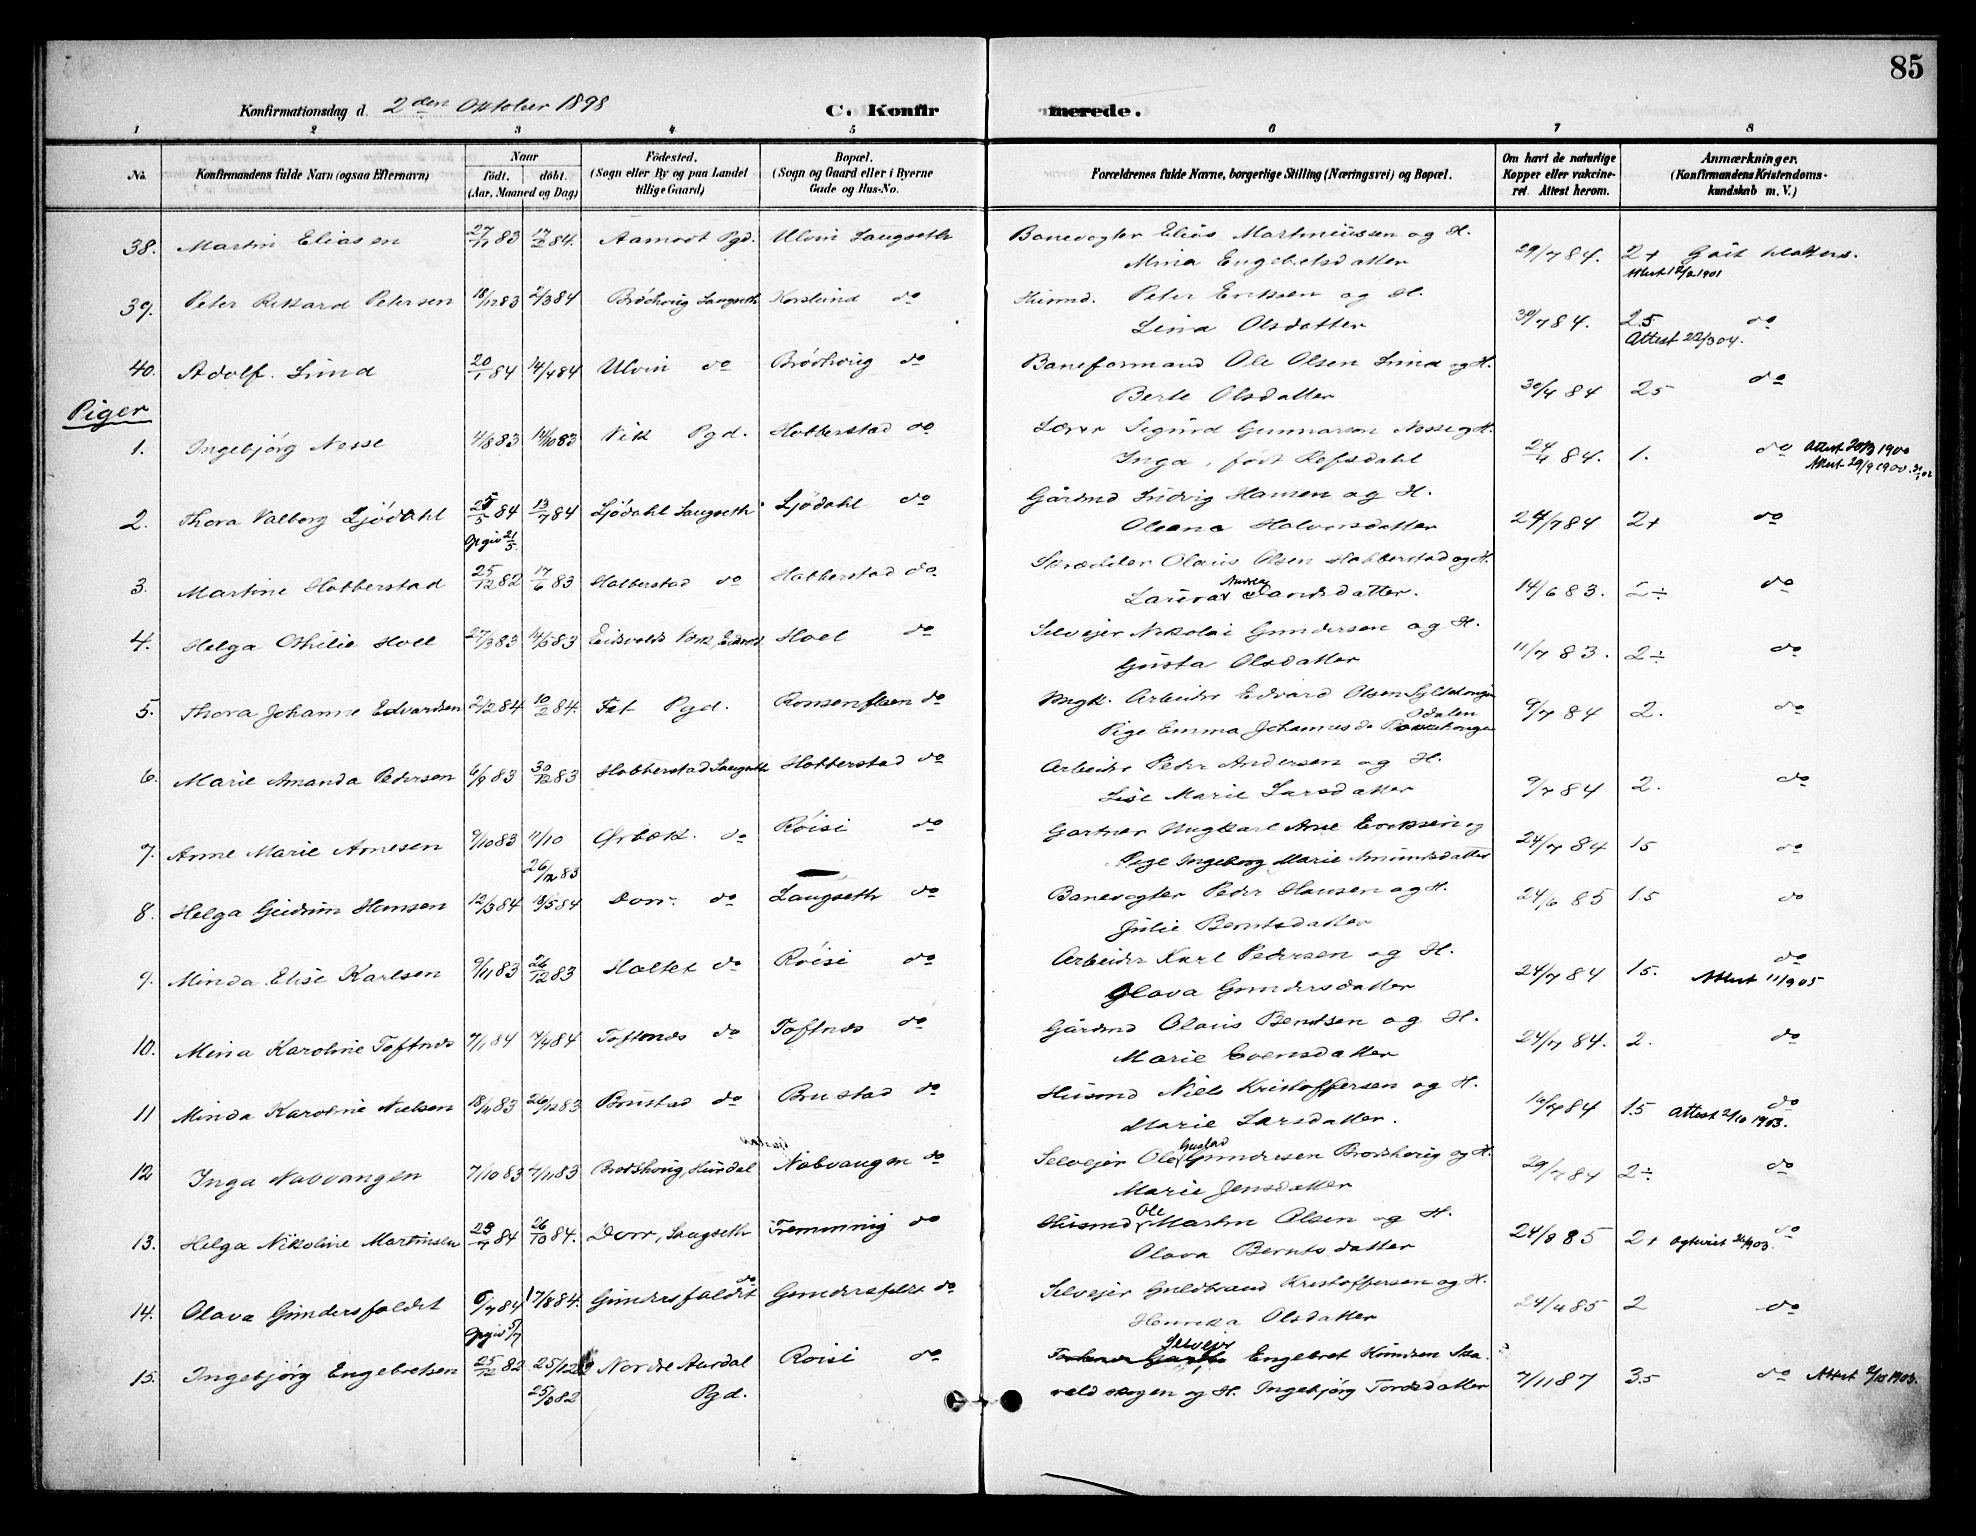 85
Konfirmationsdag d. 2den Oktober 1898 C. Konfirmerede.
1 2 3 4 5 6 7 8
No. Konfirmandens fulde Navn (ogsaa Efternavn) Naar født. døbt. (Aar, Maaned og Dag) Fødested. (Sogn eller By og paa Landet tillige Gaard) Bopæl. (Sogn og Gaard eller i Byerne Gade og Hus-No. Forældrenes fulde Navne, borgerlige Stilling (Næringsvei) og Bopæl. Om havt de naturlige Kopper eller vakcineret. Attest herom. Anmærkninger. (Konfirmandens Kristendomskundskab m. V.)
38. Martin Eliasen 27/11 83 17/2 84. Aamodt Pgd. Ulvin Langseth Banevogter Elias Martiniussen og H.
Mina Engebretsdatter 29/7 84. 2+
Attest 12/2 1901
39. Peter Rikkard Petersen 18/12 83 2/3 84 Brødhvig Langseth Korslund do Husmd. Peter Eriksen og H.
Lina Olsdatter 30/7 84. 2.5 do
Attest 22/3 04.
40. Adolf Lund 20/1 84 14/4 84 Ulvin do Brødhvig do Baneformand Ole Olsen Lund og H.
Berte Olsdatter 30/4 84 25 do
Piger
1. Ingebjørg Nesse 4/8 83 14/10 83 Vik Pgd. Hobberstad do Lærer Sigurd Gunnarson Nesse og H.
Inga, født Refsdahl 24/4 84. 1. do Attest 20/3 1900
Attest 29/9 1900.
2. Thora Valborg Ljødahl 25/5 84 13/7 84 Ljødahl Langseth Ljødahl do Gårdmd Ludvig Hansen og H.
Opgiv 21/5. Oleana Halvorsdatter 24/7 84 2+ do
3. Martine Hobberstad 25/12 82 17/6 83 Hobberstad do Hobberstad do. Skrædder Olaus Olsen Hobberstad og H.
Laura Andrea Larsdatter. 14/6 83. 2÷ do
4. Helga Othilie Hoel 27/3 83 14/5 83 Eidsvolds Vrk, Eidsvold Hoel do Selvejer Nikolai Gundersen og H.
Gusta Olsdatter 11/7 83. 2÷ do
5. Thora Johanne Edvardsen 2/12 84 10/2 84. Fet Pgd. Ronsenfloen do Ungk. Arbeider Edvard Olsen
Pige Emma Johannesd. Odalen 9/7 84 2. do
6. Marie Amanda Pedersen 6/9 83 30/12 83 Hobberstad Langseth Hobberstad do Arbeider Peder Andersen og H.
Lise Marie Larsdatter 9/7 84 2. do
7. Anne Marie Arnesen 9/10 83 11/10 Ørbæk. do Røisi do Gartner Ungkarl Arne Eriksen og
26/12 83 Pige Ingeborg Marie Amundsdatter 24/7 84 15 do
8. Helga Gudrun Hansen 12/3 84 18/5 84 Dorr. do Langseth do Banevogter Peder Hansen og H.
Julie Berntsdatter 24/6 85 1.5 do
9. Minda Elise Karlsen 9/11 83 26/12 83 Holtet do Røisi do Arbeider Karl Pedersen og H.
Olava Gundersdatter 24/7 84 15. do Attest 11/9 05
10. Mina Karoline Toftnes 7/1 84 14/4 84 Toftnes do Toftnes do Gårdmd Olaus Bentsen og H.
Marie Evensdatter 24/7 84. 2. do
11 Minda Karoline Nielsen 18/11 83 26/12 83 Brustad do Brustad do Husmd Niels Kristoffersen og H.
Marie Larsdatter. 16/7 84 1.5 do Attest 2/10 1903.
12 Inga Nabvangen 7/10 83 4/11 83 Brodshvig, Hurdal Nabvangen do Selvejer Ole Gustad Gundersen Brodshvig og H.
Marie Jensdatter 29/7 84 2÷ do
13. Helga Nikoline Martinsen 23/7 84 26/10 84. Dorr, Langseth Fremming do Husmd Ole Martin Olsen og H.
Olava Berntsdatter 24/8 85 2+ do
14. Olava Gundersfaldet 6/7 84 17/8 84. Gundersfaldet do Gundersfaldt do Selvejer Guldbrand Kristoffersen og H.
Opgiv 5/7 Henrika Olsdatter 24/4 85 2 do
15. Ingebjørg Engebretsen 25/12 82 25/12 Nordre Aurdal Røisi do Selvejer Engebret Knudsen
25/0 82 Pgd. og H. Ingebjørg Tordsdatter 7/11 87 3.5 do Attest 2/10 1903.